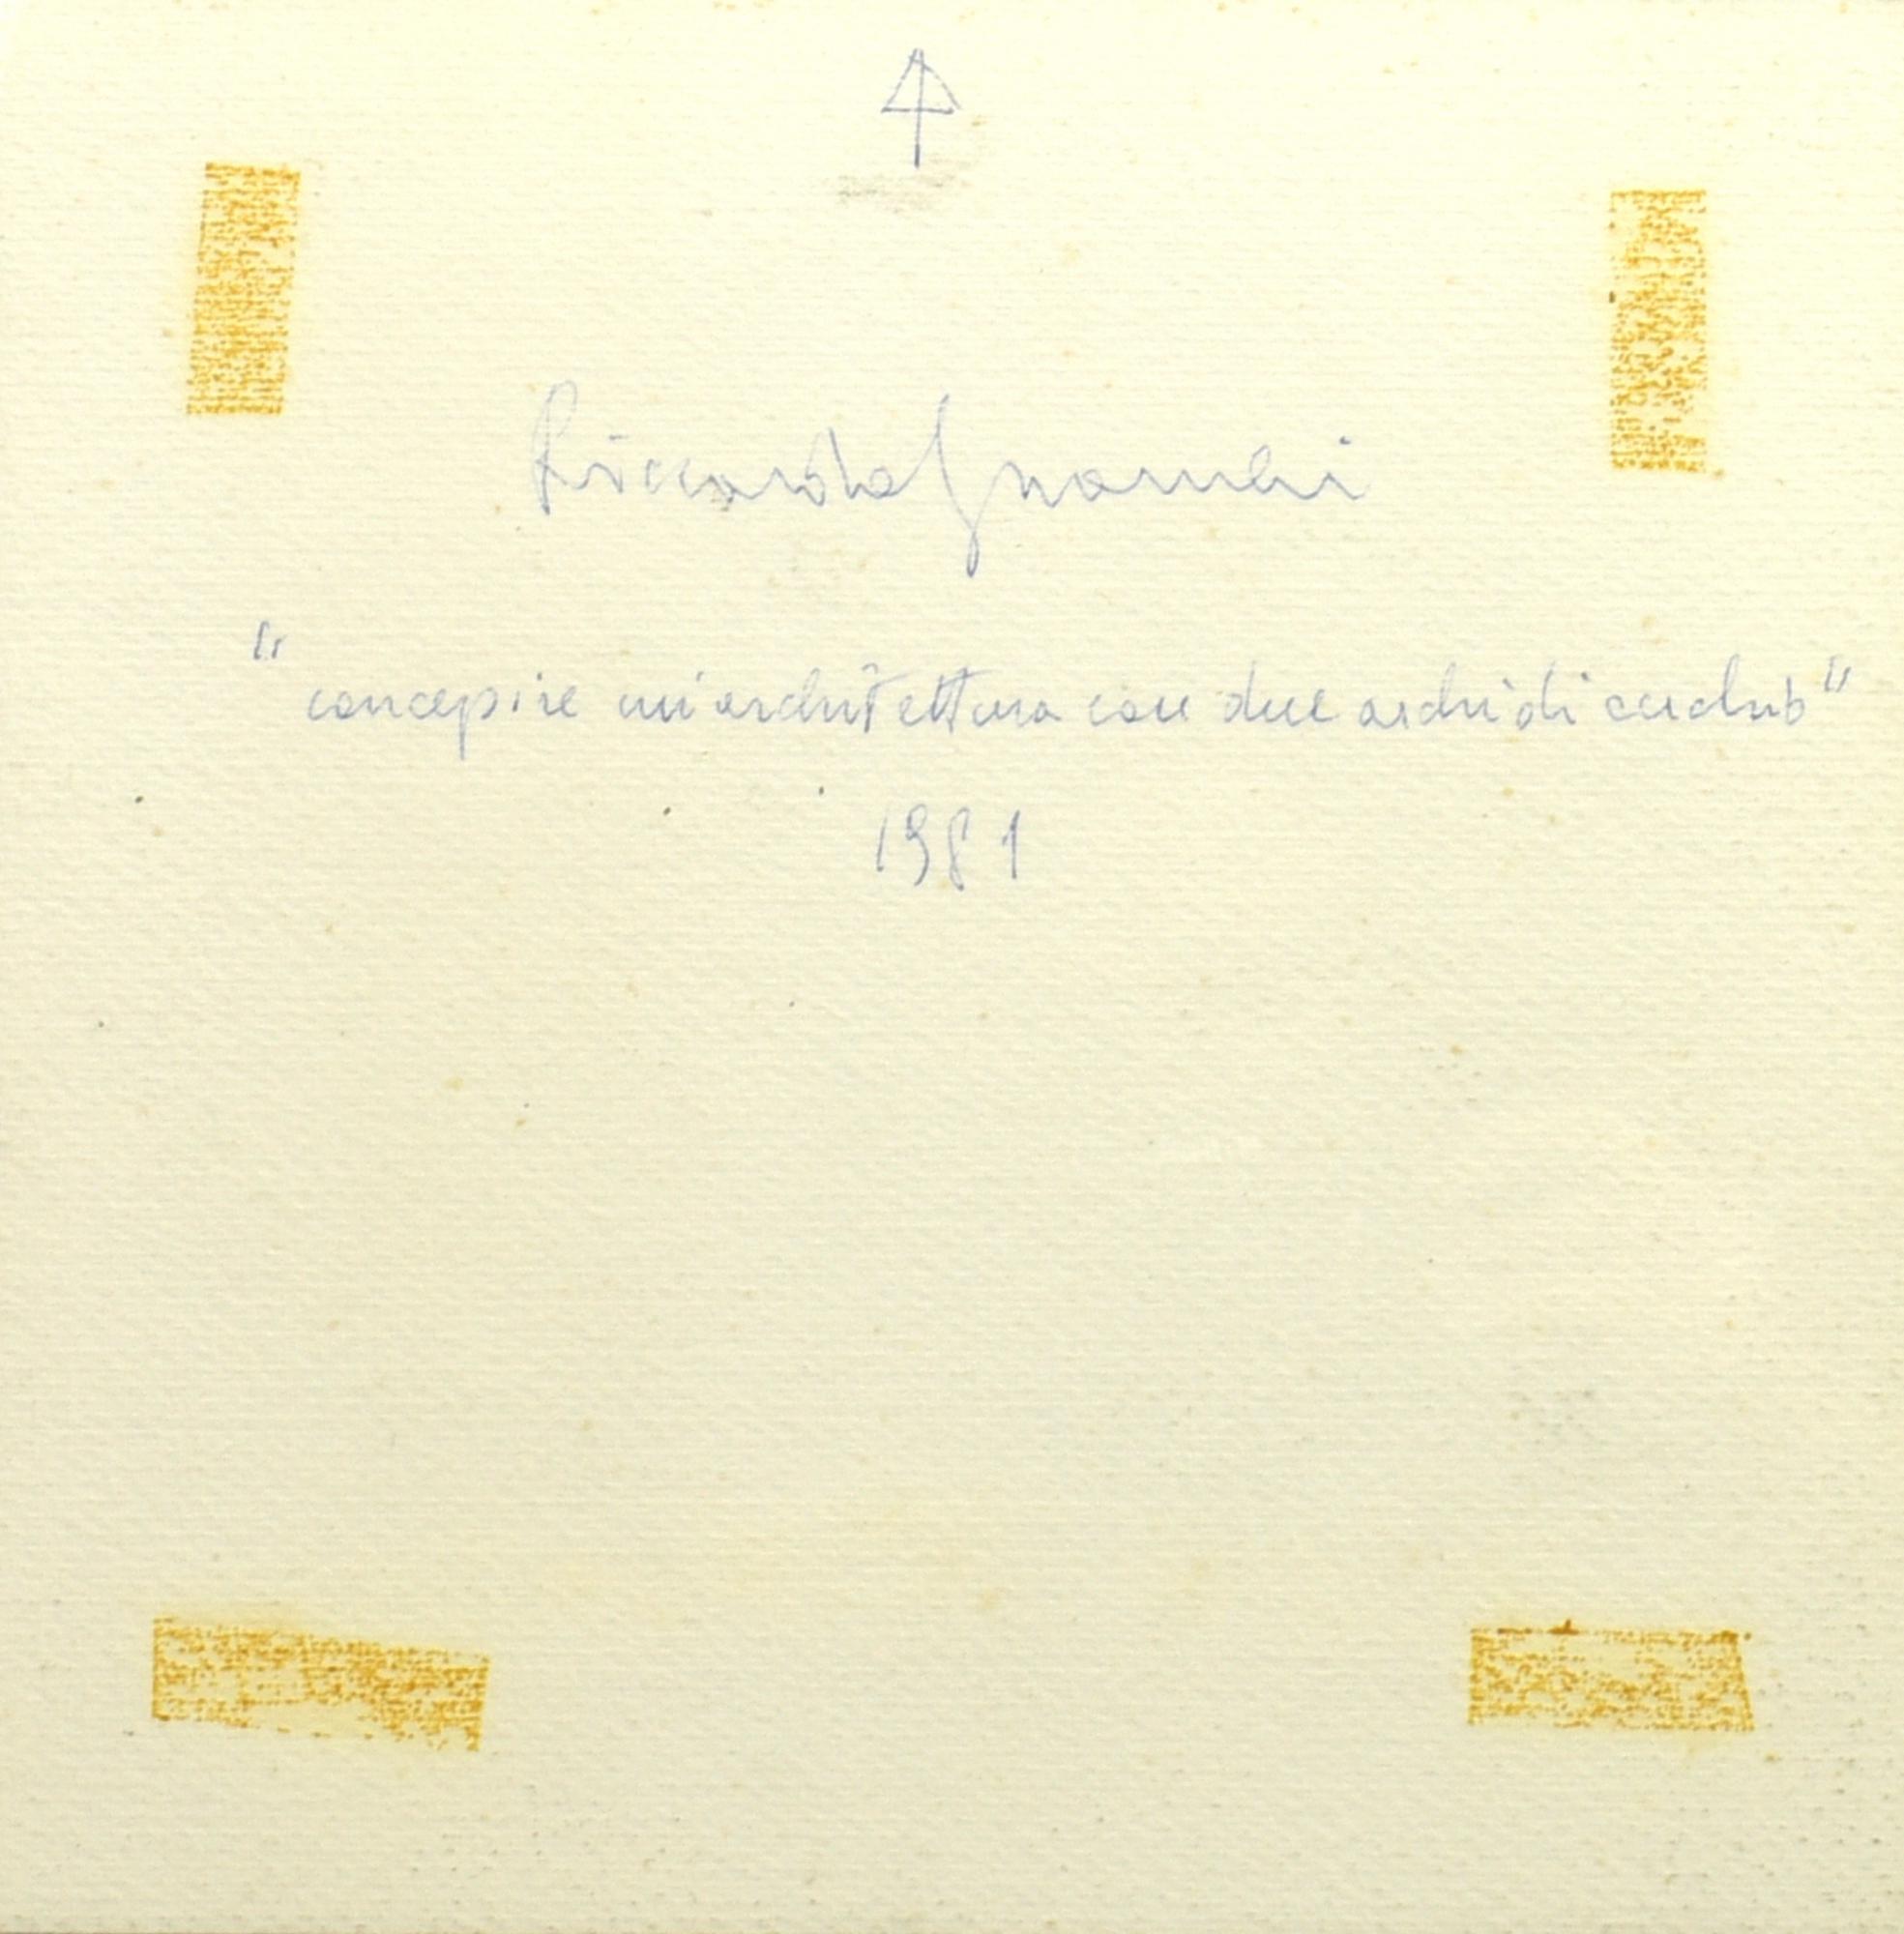 Riccardo Guarneri
"concepire un'architettura con due archi di cerchio"
1981